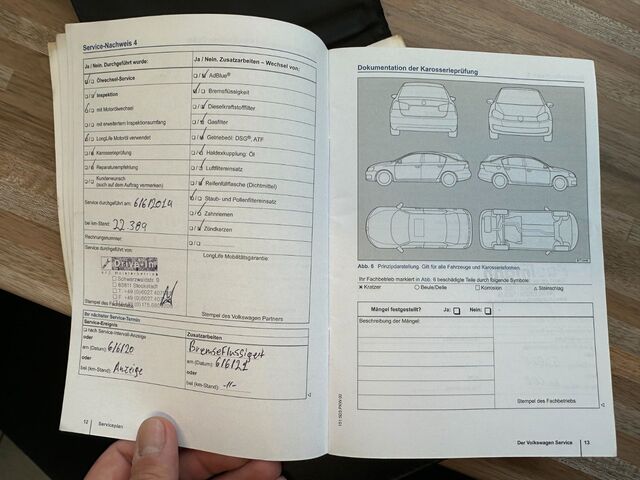 Service-Nachweis 4
Ja / Nein. Durchgeführt wurde:
Ja / Nein. Zusatzarbeiten – Wechsel von:
Ölwechsel-Service
AdBlue®
Inspektion
Bremsflüssigkeit
mit Motorölwechsel
Dieselkraftstofffilter
mit erweitertem Inspektionsumfang
Gasfilter
LongLife Motoröl verwendet
Getriebeöl: DSG®, ATF
Karosserieprüfung
Haldexkupplung: Öl
Reparaturempfehlung
Luftfiltereinsatz
Kundenwunsch
(auch auf dem Auftrag vermerken)
Reifenfüllflasche (Dichtmittel)
Service durchgeführt am: 6/6/2019
Staub- und Pollenfiltereinsatz
Zahnriemen
bei km-Stand: 22.389
Zündkerzen
Rechnungsnummer:
Service durchgeführt von:
LongLife Mobilitätsgarantie:
Drive-in
63811 Stockstadt
Stempel des Fachbetriebs
Stempel des Volkswagen Partners
Ihr nächster Service-Termin
Service-Ereignis
Zusatzarbeiten
nach Service-Intervall-Anzeige
oder
am (Datum): 6/6/20
oder
bei (km-Stand): Anzeige
Bremsflüssigkeit
am (Datum): 6/6/21
oder
bei (km-Stand): -//-
12
Serviceplan
Dokumentation der Karosserieprüfung
Abb. 6 Prinzipdarstellung. Gilt für alle Fahrzeuge und Karosserieformen.
Ihr Fachbetrieb markiert in Abb. 6 beschädigte Teile durch folgende Symbole:
× Kratzer ○ Beule/Delle □ Korrosion △ Steinschlag
Mängel festgestellt? Ja: ❑ Nein: ❑
Beschreibung der Mängel:
Stempel des Fachbetriebs
Der Volkswagen Service
13